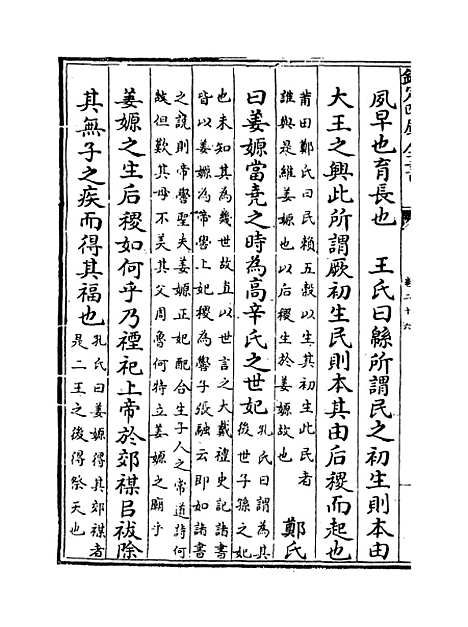 夙早也育長也　王氏曰緜所謂民之初生則本由
大王之興此所謂厥初生民則本其由后稷而起也
莆田鄭氏曰民賴五穀以生其初生此民者
誰與是維姜嫄也以后稷生於姜嫄故也
鄭氏
曰姜嫄當堯之時為高辛氏之世妃
孔氏曰謂為其
後世子孫之妃
也未知其為幾世故直以世言之大戴禮史記諸書
皆以姜嫄為帝嚳上妃稷為嚳子張融云即如諸書
之説則帝嚳聖夫姜嫄正妃配合生子人之常道詩何
故但歎其母不美其父周魯何特立姜嫄之廟乎
姜嫄之生后稷如何乎乃禋祀上帝於郊禖㠯祓除
其無子之疾而得其福也
孔氏曰姜嫄得其郊禖者
是二王之後得祭天也